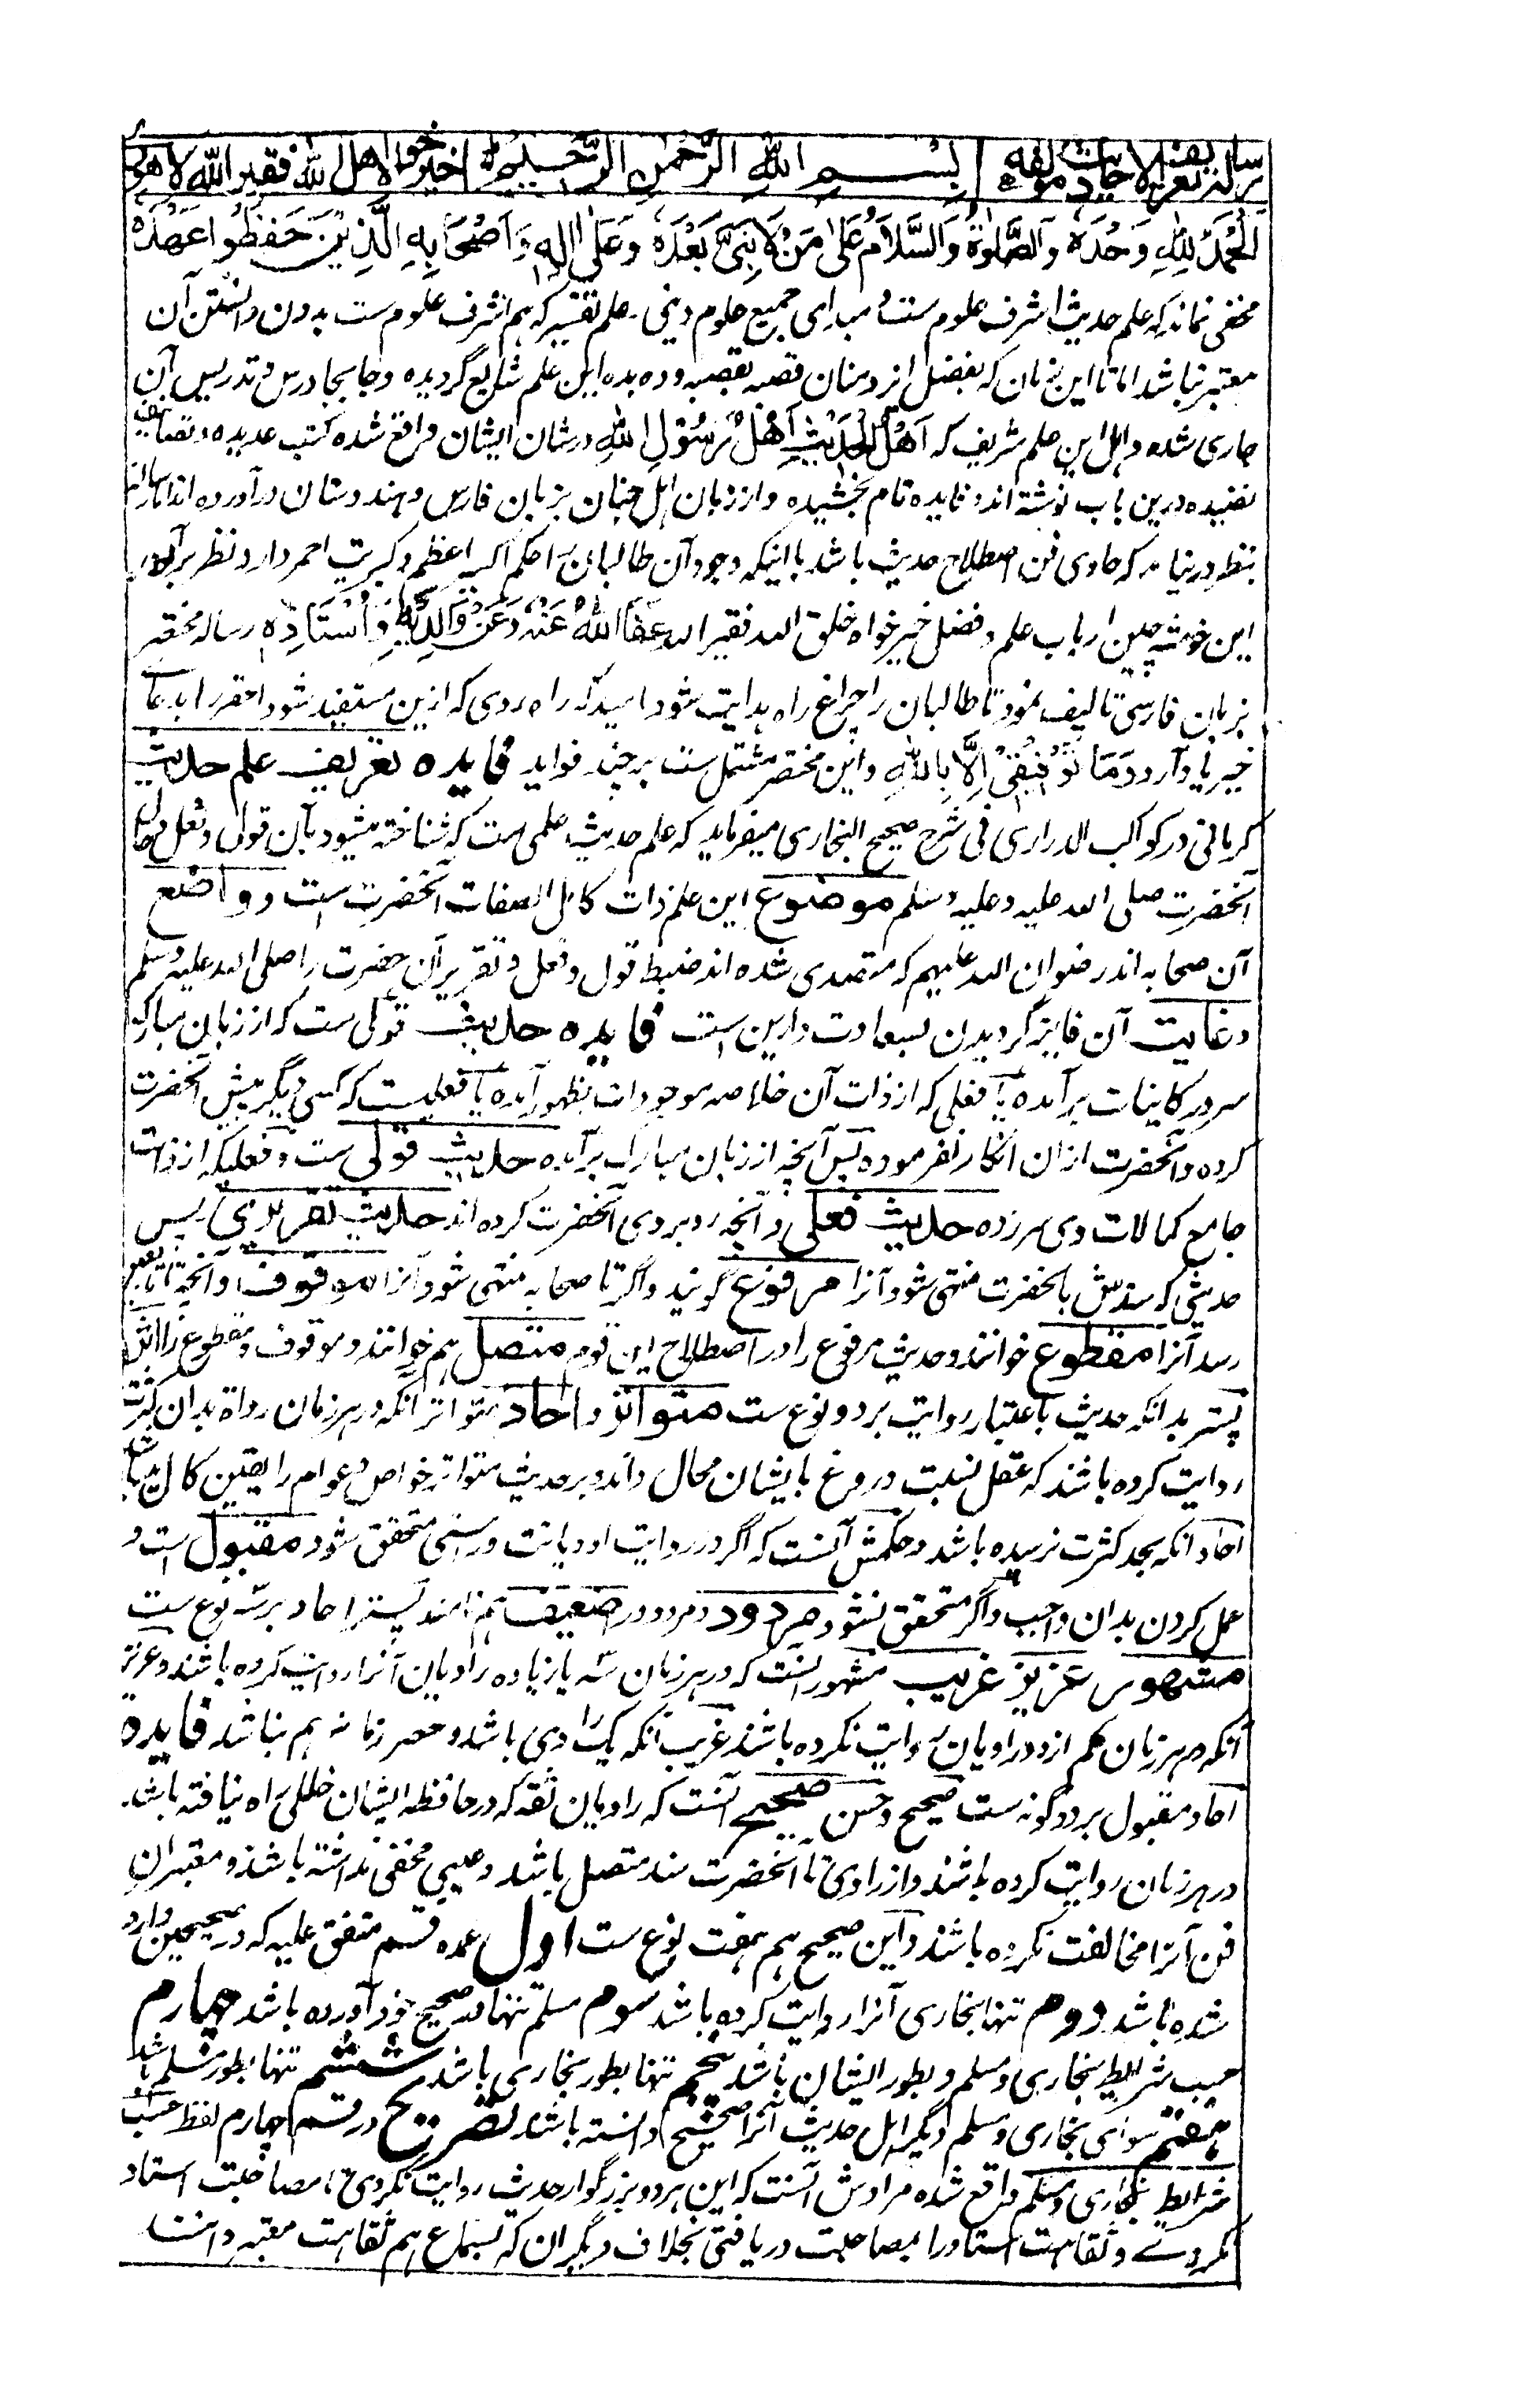 رساله تعریف الاحادیث مؤلفه بِسْمِ اللهِ الرَّحْمٰنِ الرَّحِیْمِ خیر خواه اهل لله فقیر الله لاهوری
اَلْحَمْدُ لِلّٰهِ وَحْدَهٗ وَالصَّلٰوةُ وَالسَّلَامُ عَلٰی مَنْ لَا نَبِیَّ بَعْدَهٗ وَعَلٰی اٰلِهٖ وَاَصْحَابِهِ الَّذِیْنَ حَفَظُوْا عَهْدَهٗ
مخفی نماند که علم حدیث اشرف علوم ست و مبدای جمیع علوم دینی۔ علم تفسیر که هم اشرف علوم ست بدون دانستن آن
معتبر نباشد اما تا این زمان که بفضل ایزد منان قصبه بقصبه و ده بده این علم شایع گردیده و جا بجا درس و تدریس آن
جاری شده و اهل این علم شریف که اَهْلُ الْحَدِیْثِ اَهْلُ رَسُوْلِ اللهِ در شان ایشان واقع شده کتب عدیده و تصانیف
مفیده درین باب نوشته اند و فایده تام بخشیده و از زبان اهل جنان بزبان فارس و هندوستان در آورده اند اما رساله
بنظر در نیامد که حاوی فن اصطلاح حدیث باشد با اینکه وجود آن طالبان را حکم اکسیر اعظم و کبریت احمر دارد نظر بر آن
این خوشه چین ارباب علم و فضل خیر خواه خلق الله فقیر الله عَفَا اللهُ عَنْهُ وَعَنْ وَالِدَیْهِ وَاُسْتَاذِهٖ رساله مختصر
بزبان فارسی تالیف نمود تا طالبان را چراغ راه هدایت شود امید که راه روی که ازین مستفید شود احقر را بدعای
خیر یاد آرد وَمَا تَوْفِیْقِیْ اِلَّا بِاللهِ و این مختصر مشتمل ست بر چند فواید فایده تعریف علم حدیث
کرمانی در کواکب الدراری فی شرح صحیح البخاری میفرماید که علم حدیث علمی ست که شناخته میشود بآن قول و فعل و حال
آنحضرت صلی الله علیه وعلیه وسلم موضوع این علم ذات کامل الصفات آنحضرت است و واضع
آن صحابه اند رضوان الله علیهم که متصدی شده اند ضبط قول و فعل و تقریر آن حضرت را صلی الله علیه وسلم
و غایت آن فایز گردیدن بسعادت دارین است فایده حدیث قولی ست که از زبان مبارک
سرور کاینات برآمده یا فعلی که از ذات آن خلاصه موجودات بظهور آمده یا فعلیست که کسی دیگر پیش آنحضرت
کرده و آنحضرت ازان انکار نفرموده پس آنچه از زبان مبارک برآمده حدیث قولی ست و فعلیکه از ذات
جامع کمالات وی سرزده حدیث فعلی و آنچه روبروی آنحضرت کرده اند حدیث تقریری پس
حدیثی که سندش بآنحضرت منتهی شود آنرا مرفوع گویند و اگر تا صحابه منتهی شود آنرا موقوف و آنچه تا تابعی
رسد آنرا مقطوع خوانند و حدیث مرفوع را در اصطلاح این قوم متصل هم خوانند و موقوف و مقطوع را اثر
پستر بدانکه حدیث باعتبار روایت بر دو نوع ست متواتر و احاد متواتر آنکه در هر زمان رواة بدان کثرت
روایت کرده باشند که عقل نسبت دروغ بایشان محال داند و بر حدیث متواتر خواص و عوام را یقین کامل میباشد
احاد آنکه بحد کثرت نرسیده باشد و حکمش آنست که اگر در روایت او دیانت و راستی متحقق شود مقبول است و
عمل کردن بدان واجب و اگر متحقق نشود مردود و مردود را ضعیف هم نامند پستر احاد بر سه نوع ست
مشهور عزیز غریب مشهور آنست که در هر زمان سه یا زیاده راویان آنرا روایت کرده باشند و عزیز
آنکه در هر زمان کم از دو راویان روایت نکرده باشند غریب آنکه یک راوی باشد و حصر زمانه هم نباشد فایده
احاد مقبول بر دو گونه ست صحیح و حسن صحیح آنست که راویان ثقه که در حافظه ایشان خللی راه نیافته باشد
در هر زمان روایت کرده باشند و از راوی تا آنحضرت سند متصل باشد و عیبی مخفی نداشته باشد و معتبران
فن آنرا مخالفت نکرده باشند و این صحیح هم هفت نوع ست اول عمده قسم متفق علیه که در صحیحین وارد
شده باشد دوم تنها بخاری آنرا روایت کرده باشد سوم مسلم تنها در صحیح خود آورده باشد چهارم
حسب شرایط بخاری و مسلم و بطور ایشان باشد پنجم تنها بطور بخاری باشد ششم تنها بطور مسلم باشد
هفتم سوای بخاری و مسلم دیگر اهل حدیث آنرا صحیح دانسته باشند تصریح در قسم چهارم لفظ حسب
شرایط بخاری و مسلم واقع شده مرادش آنست که این هر دو بزرگوار حدیث روایت نکردی تا مصاحبت استاد
نکردے و ثقاهت استاد را بمصاحبت دریافتی بخلاف دیگران که بسماع هم ثقاهت معتبر دانست